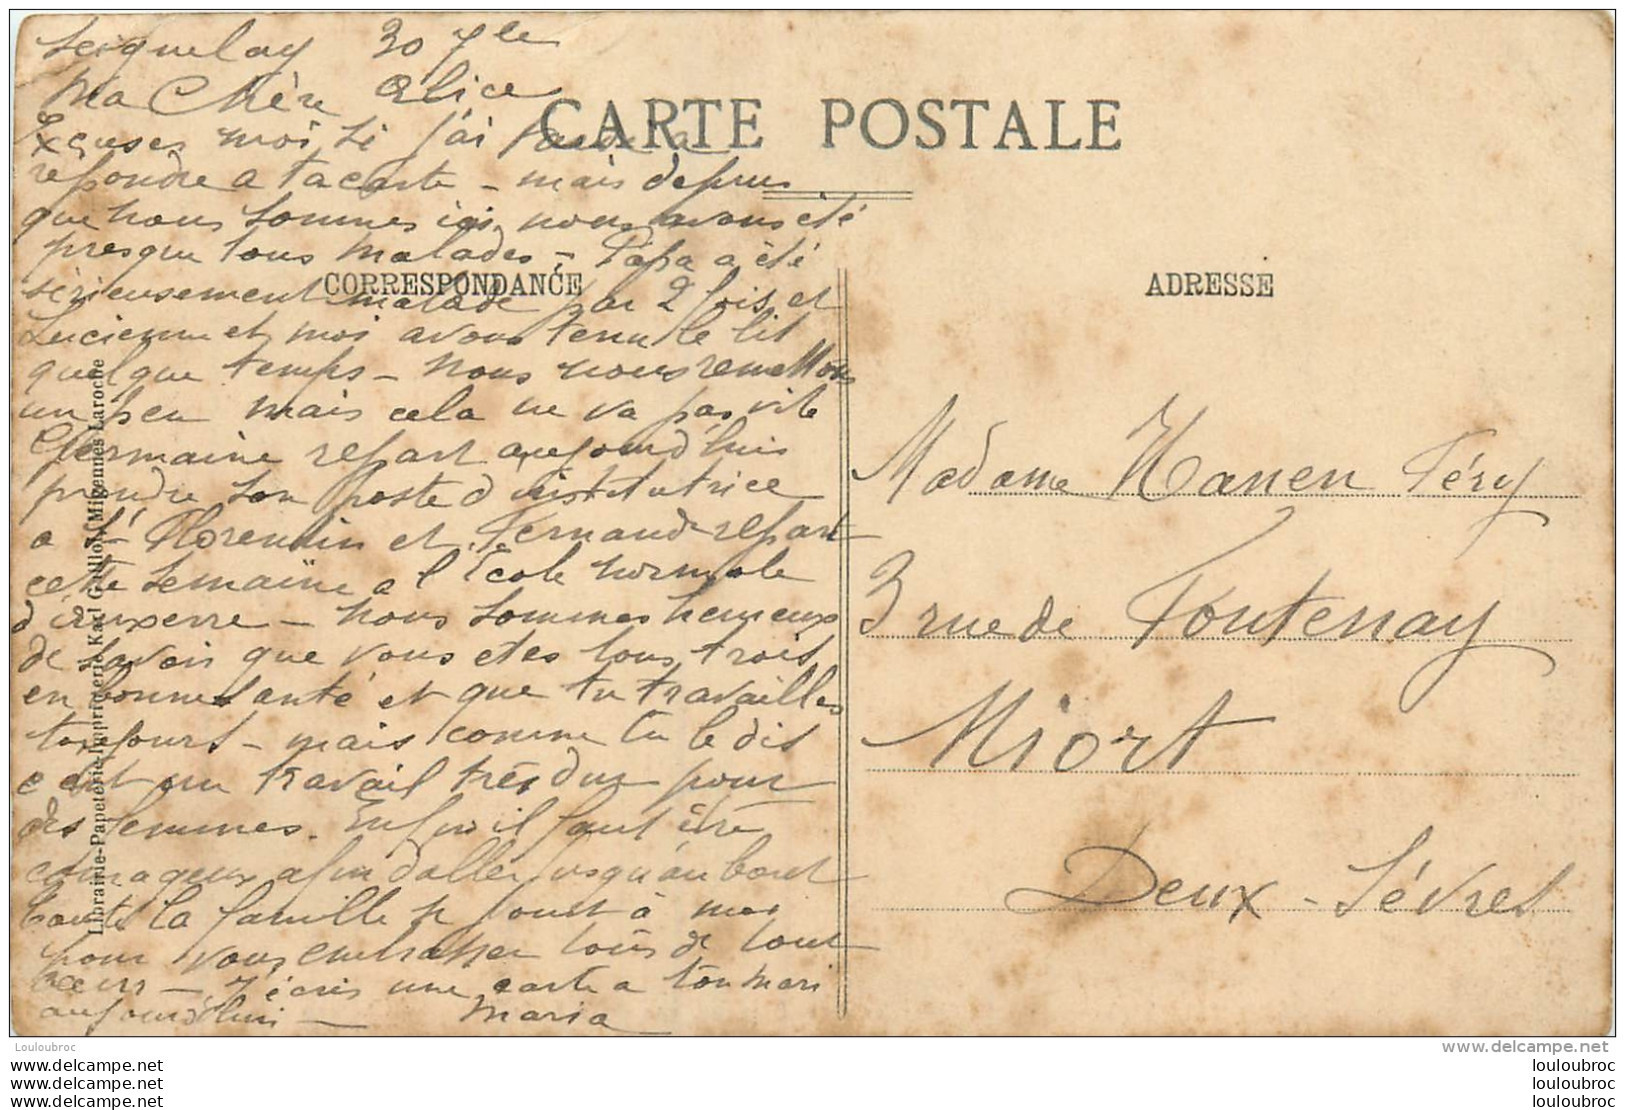 Seignelay 30 7bre
Ma Chère Alice
CARTE POSTALE
Excuses moi si j'ai tardé à
repondre a ta carte - mais depuis
que nous sommes ici, nous avons été
presque tous malades - Papa a été
CORRESPONDANCE
sérieusement malade par 2 fois et
Lucienne et moi avons tenu le lit
quelque temps - nous nous remettons
un peu mais cela ne va pas vite
Germaine repart aujourd'hui
prendre son poste d'institutrice
a St Florentin et Fernand repart
cette semaine a l'Ecole normale
d'Auxerre - nous sommes heureux
de savoir que vous etes tous trois
en bonne santé et que tu travailles
toujours - mais comme tu le dis
c'est un travail très dur pour
des femmes. Enfin il faut être
courageux afin d'aller jusqu'au bout
toute la famille se joint à moi
pour vous embrasser tous de tout
cœurs - J'écris une carte a ton mari
aujourd'hui - Maria
Librairie-Papeterie-Imprimerie Karl Guillot, Migennes Laroche
ADRESSE
Madame Hanen Féry
3 rue de Fontenay
Niort
Deux-Sèvres
Louloubroc
www.delcampe.net
louloubroc
louloubroc
louloubroc
louloubroc
louloubroc
louloubroc